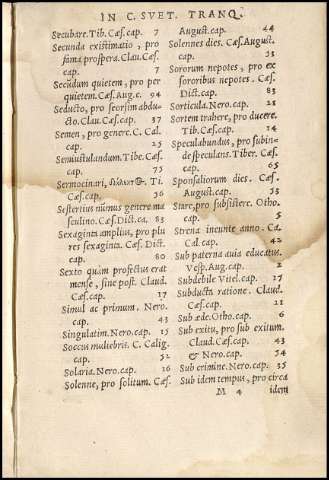 IN C. SVET. TRANQ.
Secubare. Tib. Cæs. cap. 7
Secunda existimatio, pro
fama prospera. Clau. Cæs.
cap. 7
Secūdum quietem, pro per
quietem. Cæs. Aug. c. 94
Seducto, pro seorsim abdu-
cto. Clau. Cæs. cap. 37
Semen, pro genere. C. Cal.
cap. 25
Semiustulandum. Tibe. Cæs.
cap. 75
Sermocinari, Ti.
Cæs. cap. 56
Sestertius nūmus genere ma
sculino. Cæs. Dict. ca. 83
Sexaginta amplius, pro plu
res sexaginta. Cæs. Dict.
cap. 80
Sexto quàm profectus erat
mense, sine post. Claud.
Cæs. cap. 17
Simul ac primum. Nero.
cap. 43
Singulatim. Nero. cap. 15
Soccus muliebris. C. Calig.
cap. 52
Solaria. Nero. cap. 16
Solenne, pro solitum. Cæs.
August. cap. 44
Solennes dies. Cæs. August.
cap. 53
Sororum nepotes, pro ex
sororibus nepotes. Cæs.
Dict. cap. 83
Sorticula. Nero. cap. 21
Sortem trahere, pro ducere.
Tib. Cæs. cap. 14
Speculabundus, pro subin-
de speculans. Tiber. Cæs.
cap. 65
Sponsaliorum dies. Cæs.
August. cap. 53
Stare, pro subsistere. Otho.
cap. 5
Strena ineunte anno. Ca
Cal. cap. 42
Sub paterna auia educatus.
Vesp. Aug. cap. 2
Subdebile. Vitel. cap. 17
Subducta ratione. Claud.
Cæs. cap. 21
Sub æde. Otho. cap. 6
Sub exitu, pro sub exitum.
Claud. Cæs. cap. 43
& Nero. cap. 54
Sub crimine. Nero. cap. 35
Sub idem tempus, pro circa
M 4 idem